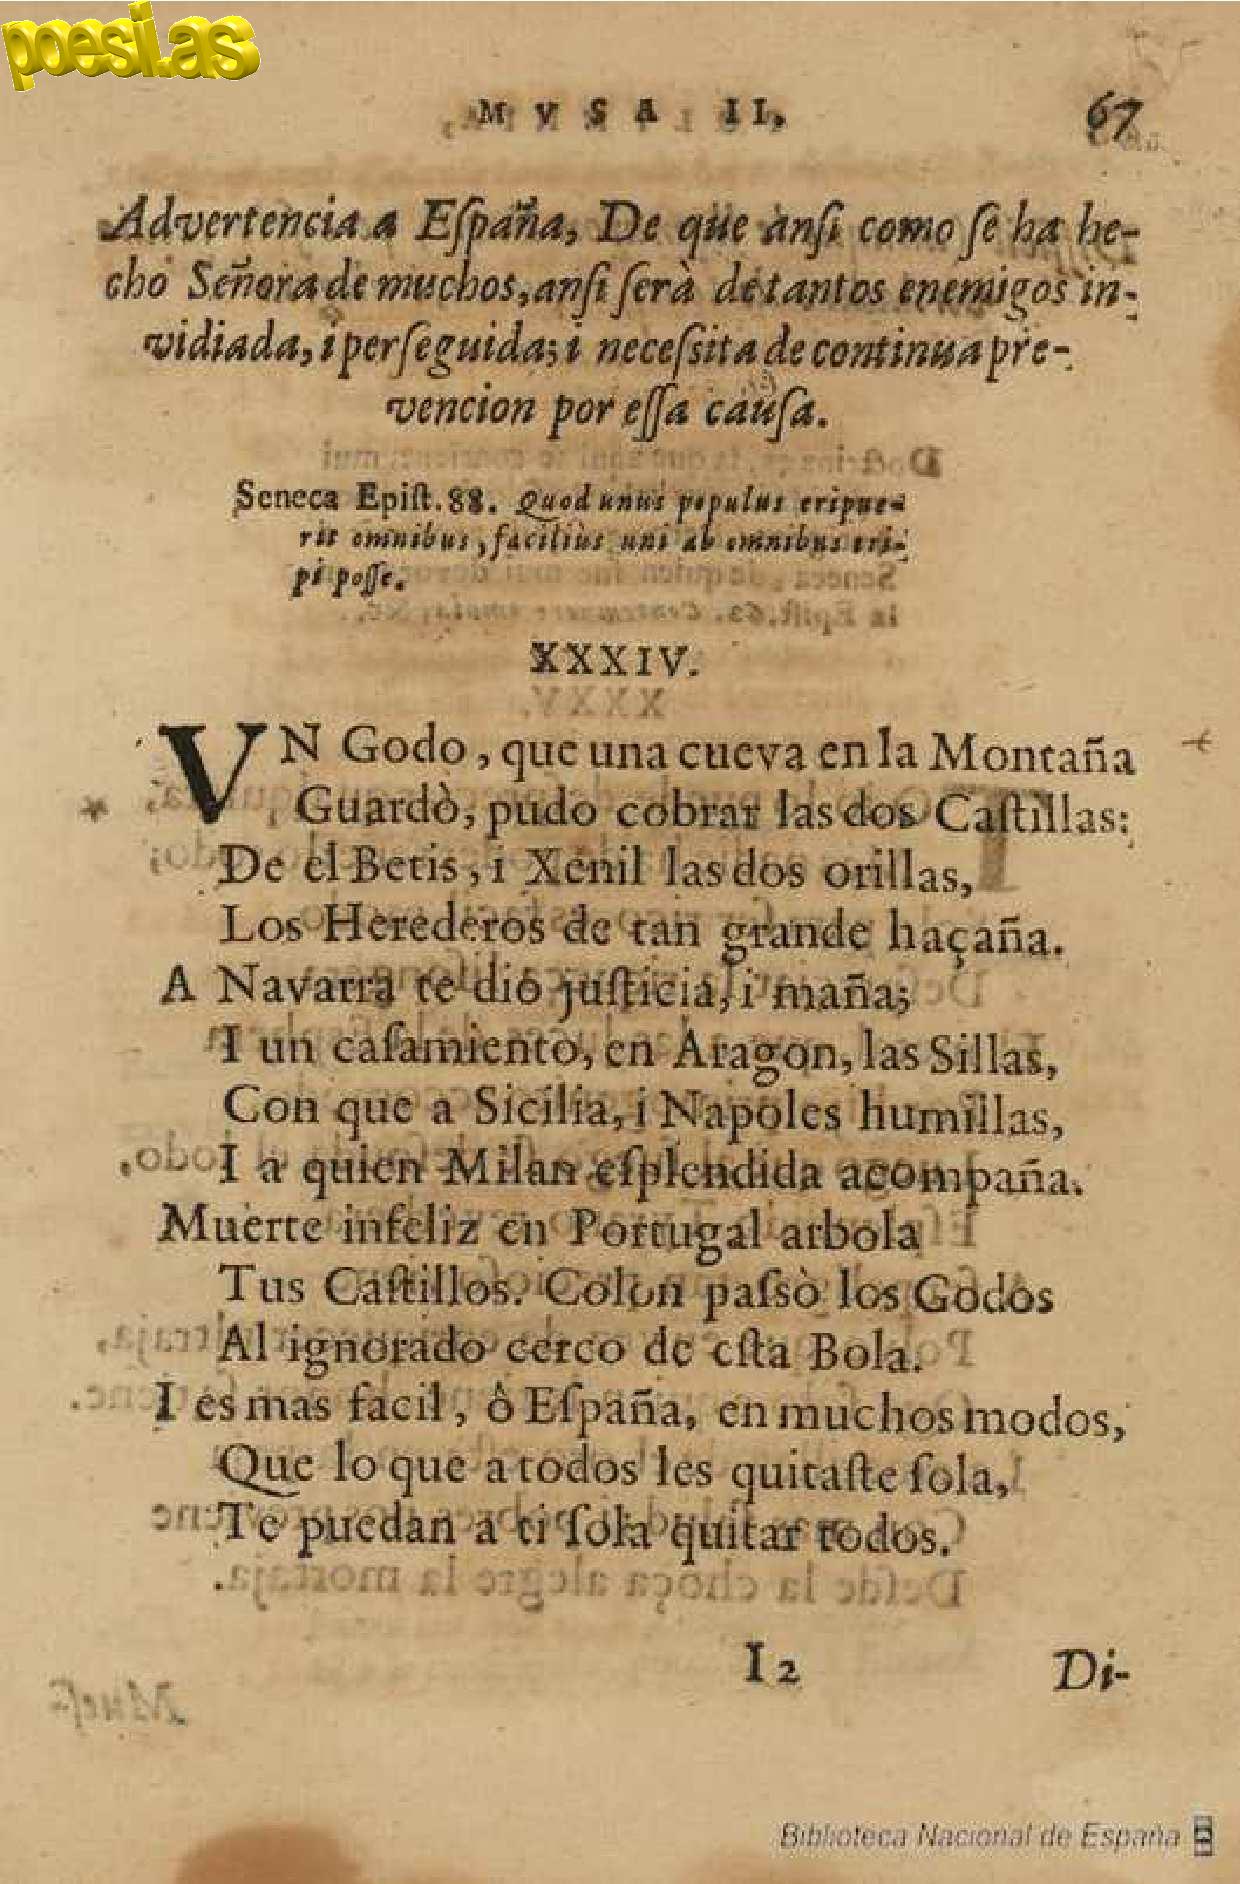 poesi.as
MVSA II,
67
Advertencia a Eſpaña, De que anſi como ſe ha he-
cho Señora de muchos, anſi ſerà de tantos enemigos in-
vidiada, i perſeguida; i neceſsita de continua pre-
vencion por eſſa cauſa.
Seneca Epiſt. 88. Quod unus populus eripue-
rit omnibus, faciliùs uni ab omnibus eri-
pi poſſe.
XXXIV.
VN Godo, que una cueva en la Montaña
Guardò, pudo cobrar las dos Caſtillas:
De el Betis, i Xenil las dos orillas,
Los Herederos de tan grande haçaña.
A Navarra te dio juſticia, i maña;
I un caſamiento, en Aragon, las Sillas,
Con que a Sicilia, i Napoles humillas,
I a quien Milan eſplendida acompaña.
Muerte infeliz en Portugal arbola
Tus Caſtillos. Colon paſsò los Godos
Al ignorado cerco de eſta Bola.
I es mas facil, ô Eſpaña, en muchos modos,
Que lo que a todos les quitaſte ſola,
Te puedan a ti ſola quitar todos.
I 2
Di-
Biblioteca Nacional de España